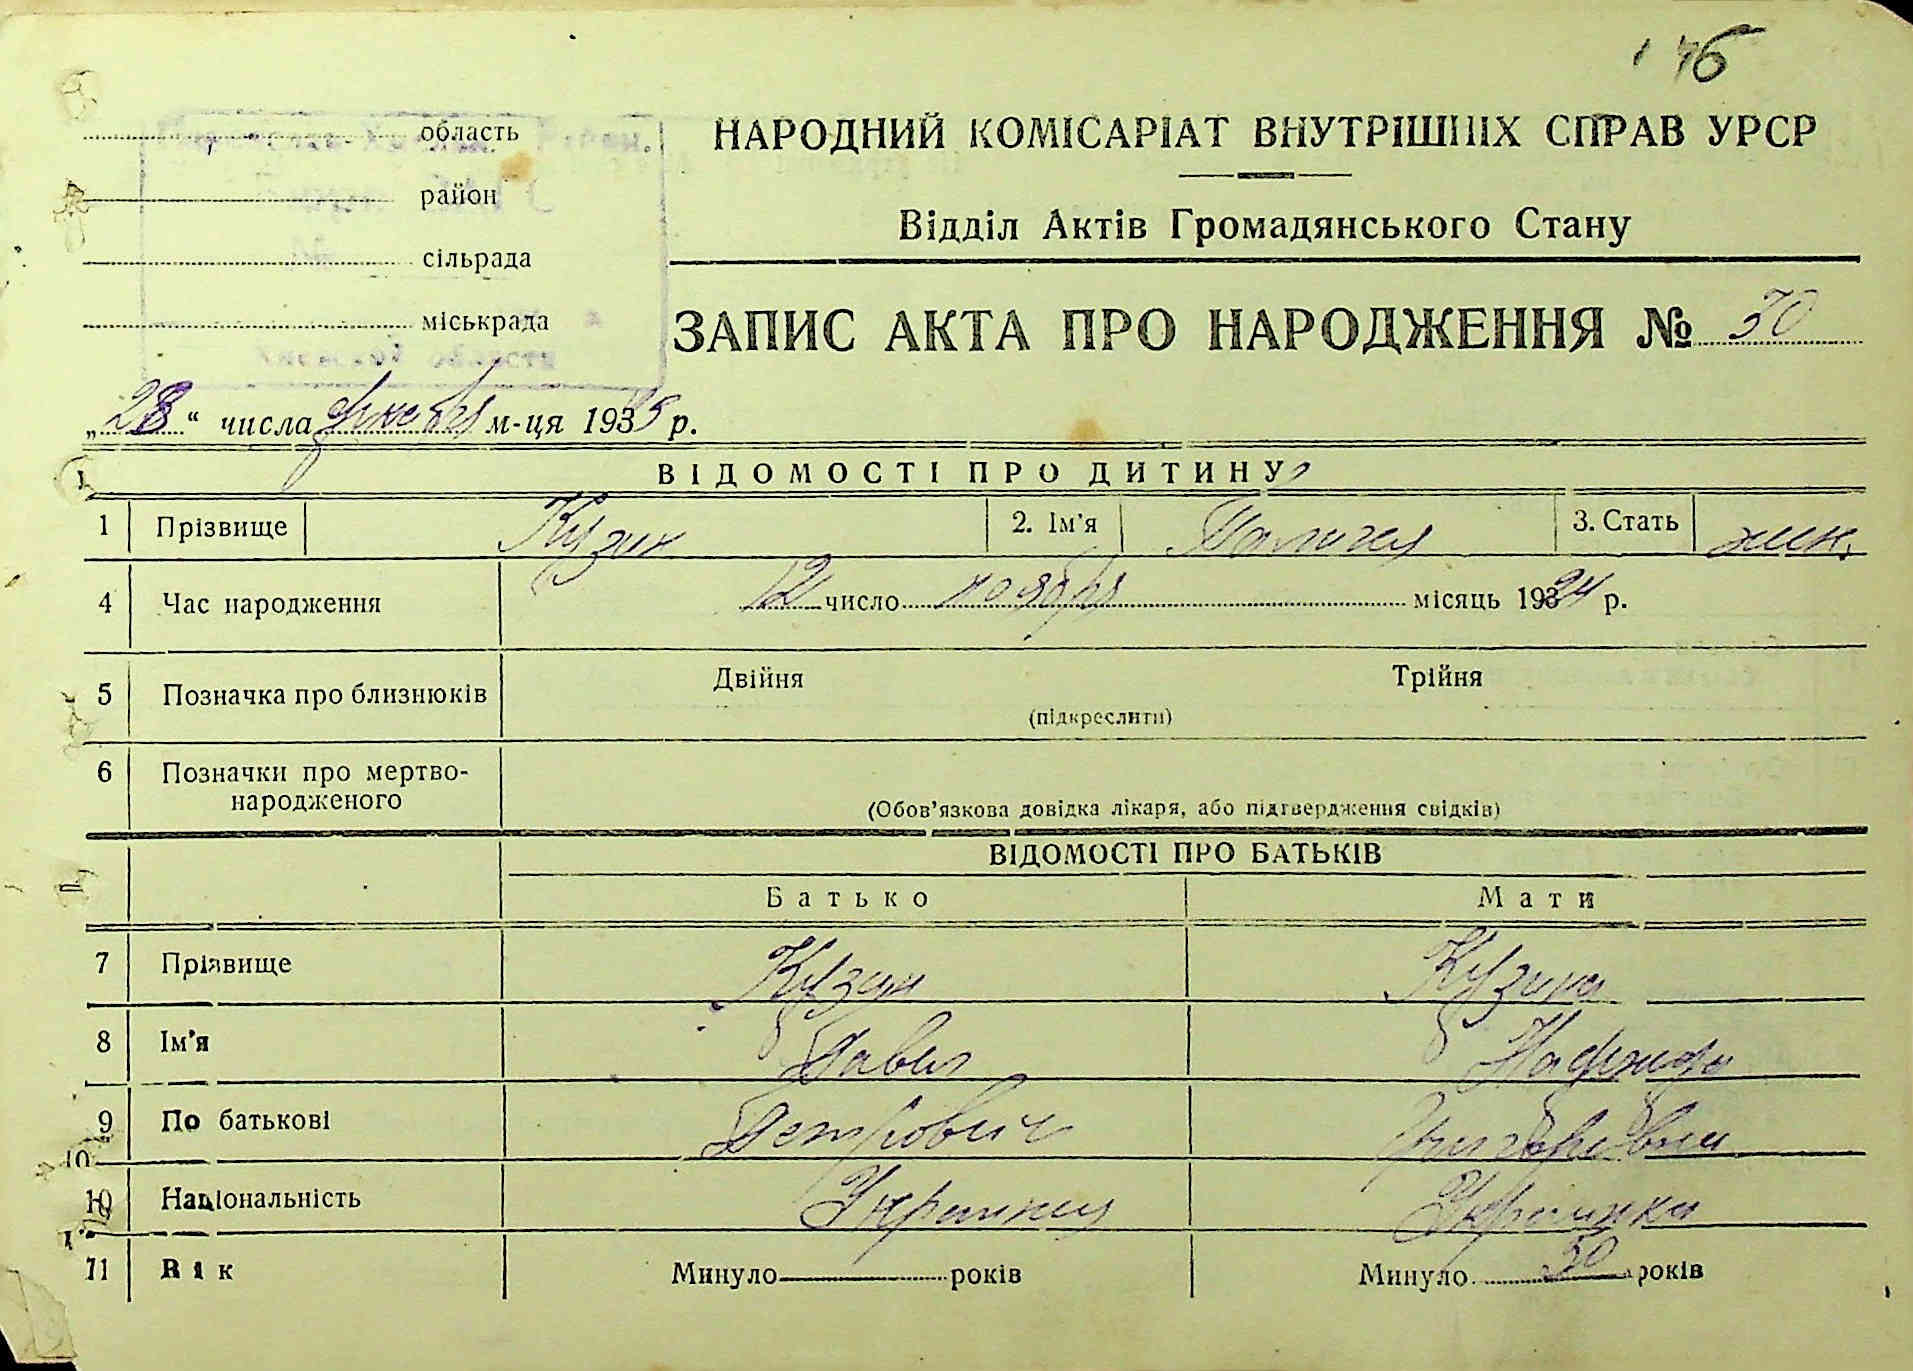 46
область
район
сільрада
міськрада
Киевской области
НАРОДНИЙ КОМІСАРІАТ ВНУТРІШНІХ СПРАВ УРСР
Відділ Актів Громадянського Стану
ЗАПИС АКТА ПРО НАРОДЖЕННЯ № 30
„28“ числа декабря м-ця 1935 р.
I
ВІДОМОСТІ ПРО ДИТИНУ
1 Прізвище Кузин 2. Ім'я 3. Стать жен.
4 Час народження 12 число ноября місяць 1934 р.
5 Позначка про близнюків Двійня Трійня
(підкреслити)
6 Позначки про мертво-
народженого
(Обов'язкова довідка лікаря, або підтвердження свідків)
II
ВІДОМОСТІ ПРО БАТЬКІВ
Батько Мати
7 Прізвище Кузин Кузина
8 Ім'я Павел Надежда
9 По батькові Петрович Григорьевна
10
10 Національність Украинец Украинка
11 Вік Минуло років Минуло 30 років